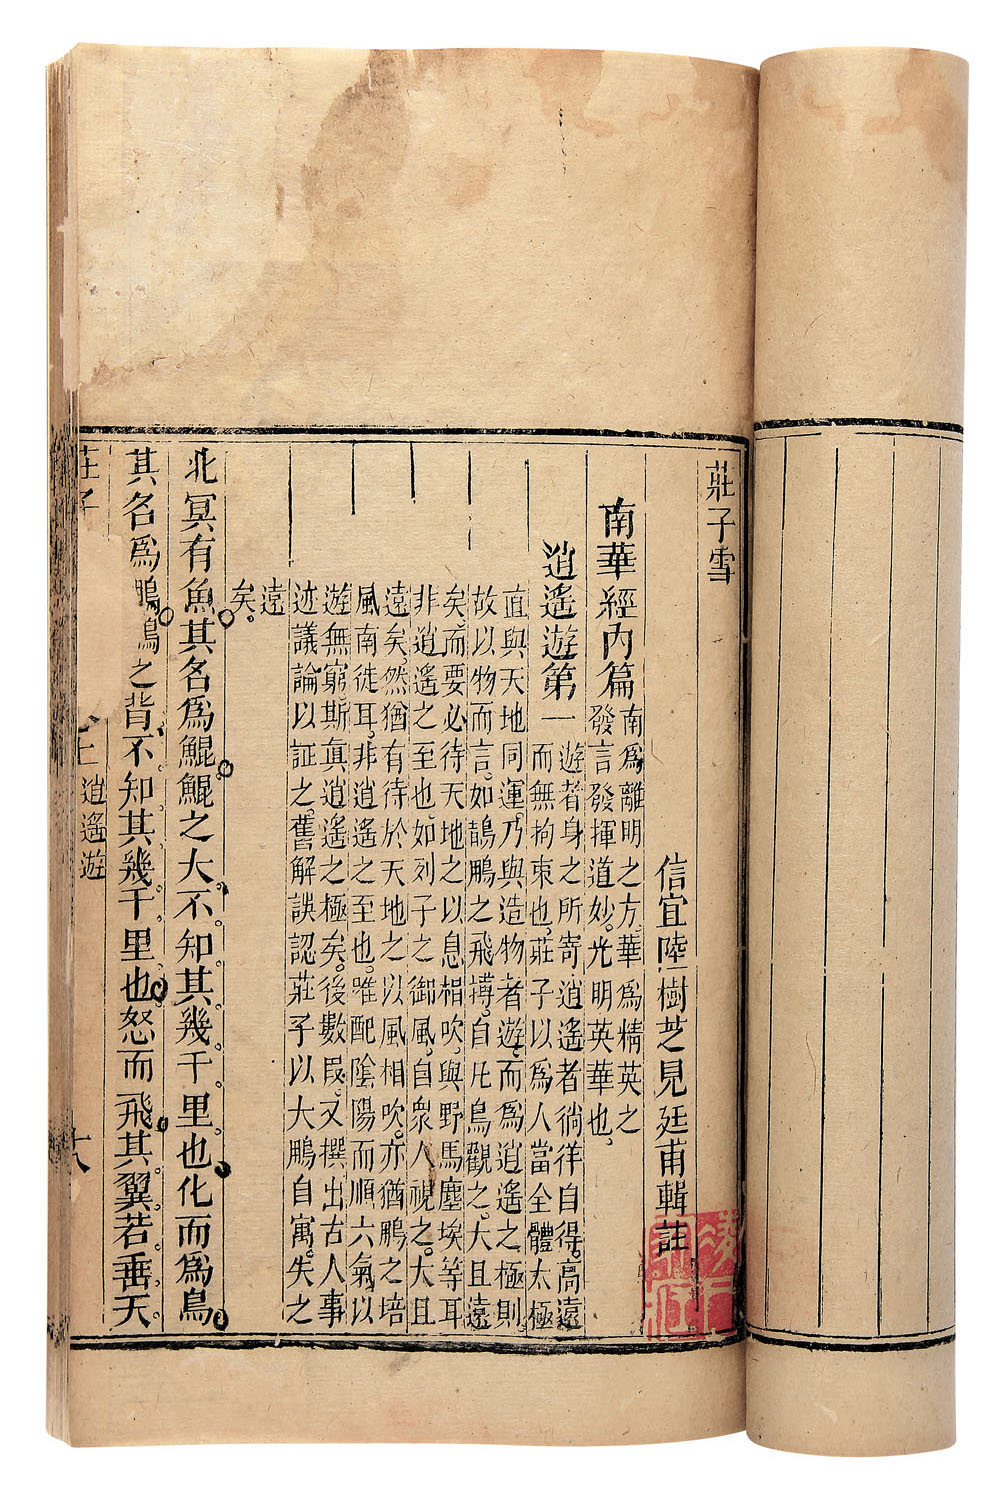 莊子雪
信宜陸樹芝見廷甫輯註
南華經內篇
南爲離明之方。華爲精英之
發言發揮道妙。光明英華也。
逍遙遊第一
遊者身之所寄逍遙者徜徉自得。高遠
而無拘束也。莊子以爲人當全體太極
直與天地同運。乃與造物者遊。而爲逍遙之極則。
故以物而言。如鵲鵬之飛摶。自凡鳥觀之。大且遠
矣。而要必待天地之以息相吹。與野馬塵埃等耳
非逍遙之至也。如列子之御風。自衆人視之。大且
遠矣。然猶有待於天地之以風相吹。亦猶鵬之培
風南徒耳。非逍遙之至也。唯配陰陽而順六氣。以
遊無窮。斯眞逍遙之極矣。後數段。又撰出古人事
迹議論以証之。舊解誤認莊子以大鵬自寓。失之
遠
矣。
北冥有魚其名爲鯤鯤之大不知其幾千里也化而爲鳥
其名爲鵬鵬之背不知其幾千里也怒而飛其翼若垂天
莊子 上 逍遙遊 十八